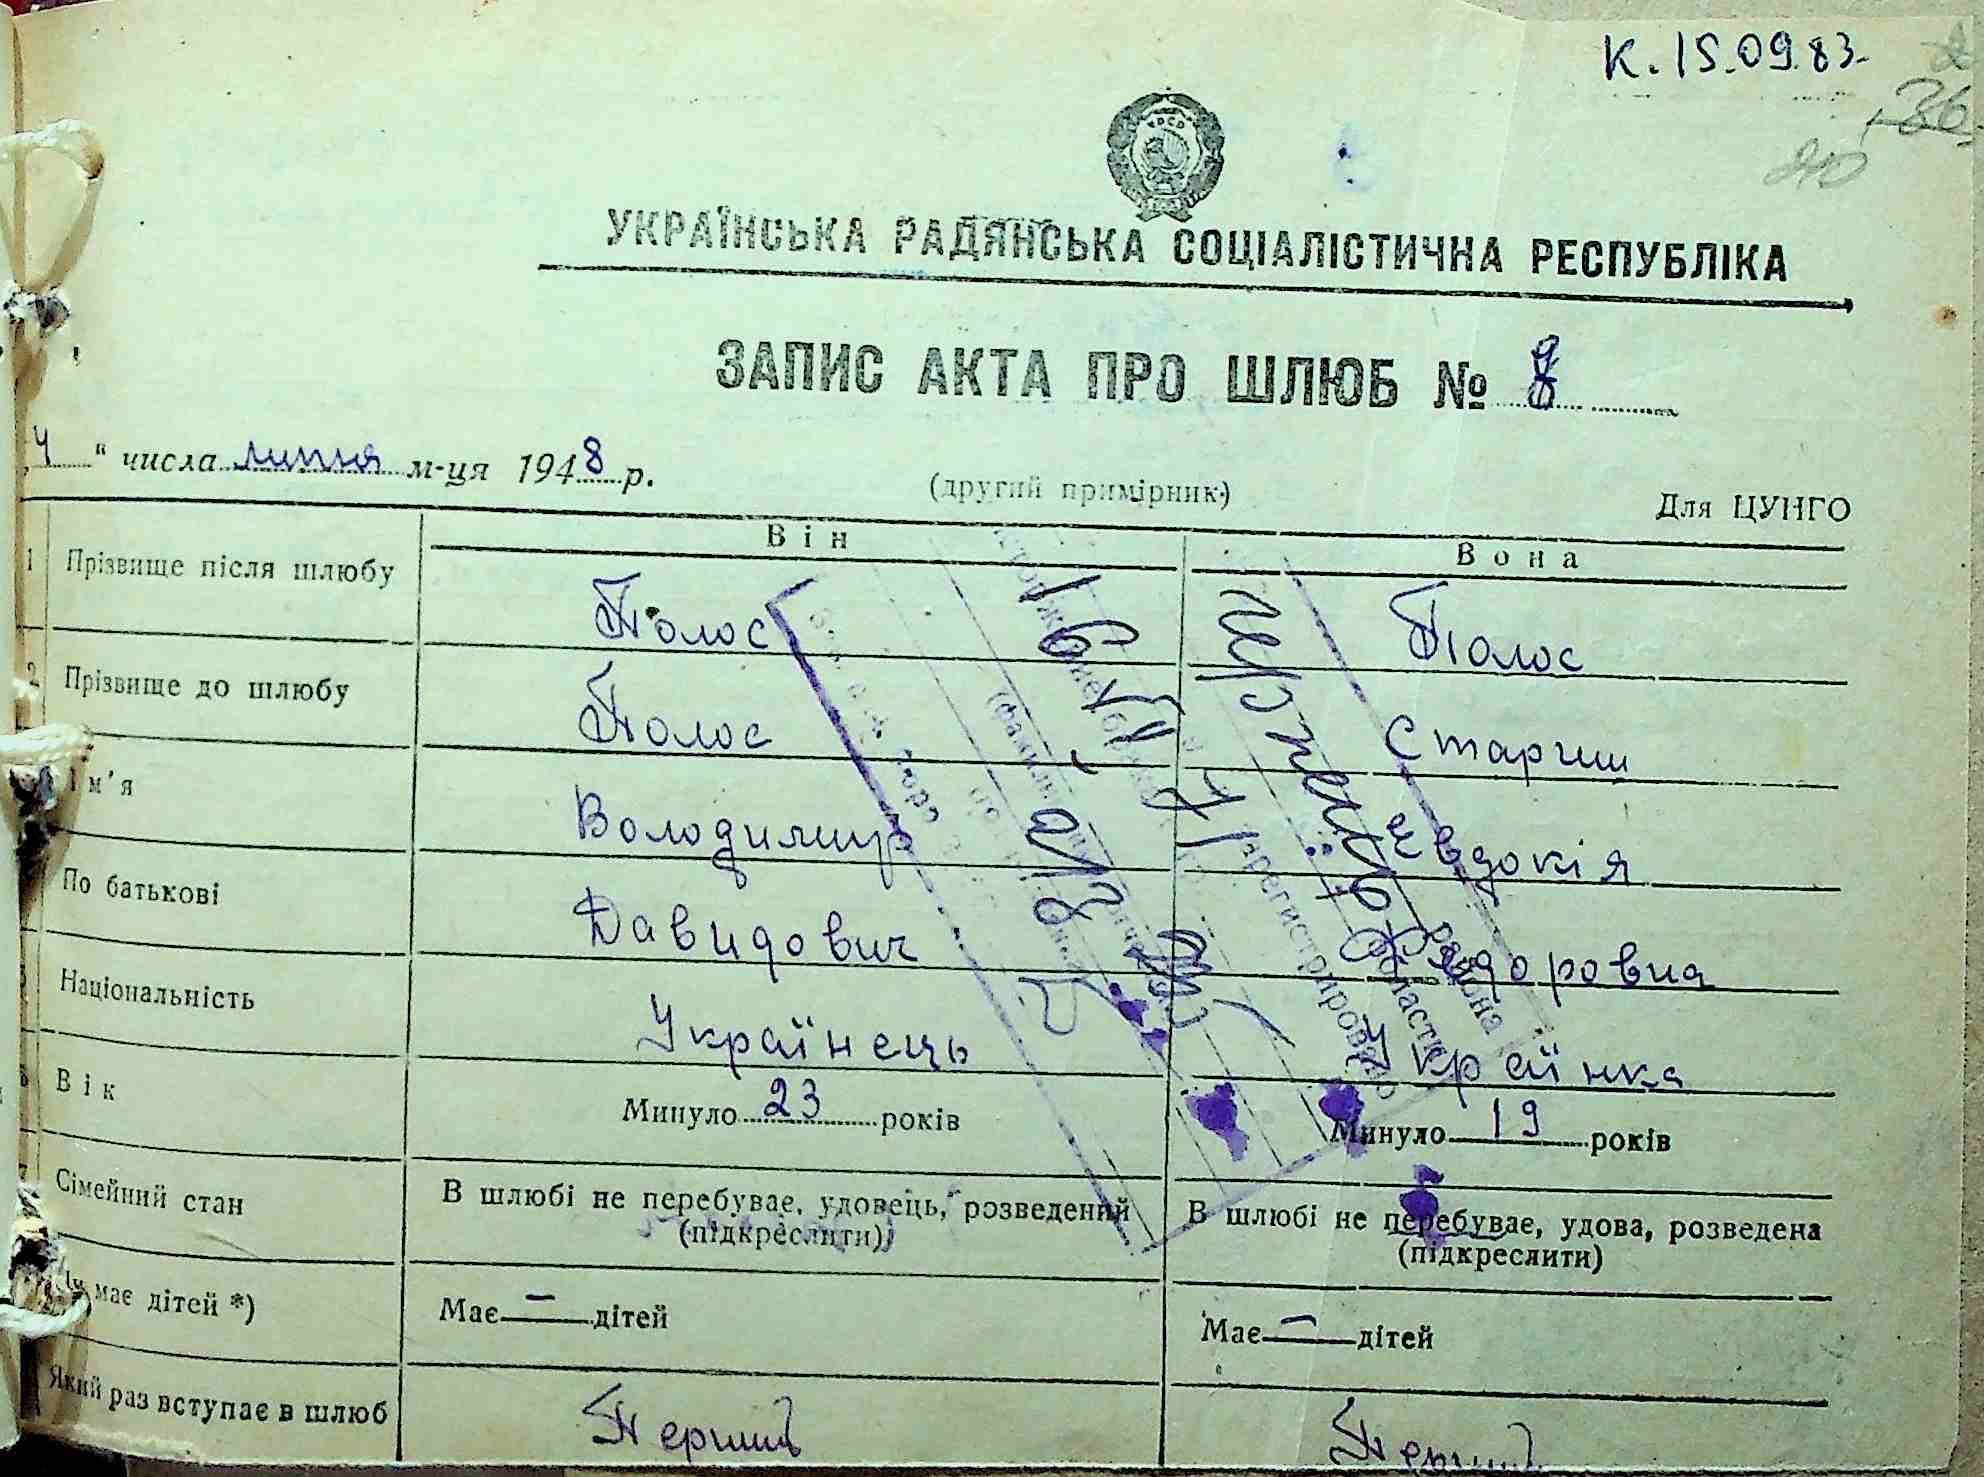 К. 15.09.83.
36
УКРАЇНСЬКА РАДЯНСЬКА СОЦІАЛІСТИЧНА РЕСПУБЛІКА
ЗАПИС АКТА ПРО ШЛЮБ № 8
4 " числа липня м-ця 1948 р.
(другий примірник)
Для ЦУНГО
Він Вона
1 Прізвище після шлюбу Полос Полос
2 Прізвище до шлюбу Полос Стариш
Ім'я Володимир Євдокія
По батькові Давидович Федоровна
Національність Українець Українка
6 Вік Минуло 23 років Минуло 19 років
Сімейний стан В шлюбі не перебуває, удовець, розведений В шлюбі не перебуває, удова, розведена
(підкреслити) (підкреслити)
має дітей *) Має — дітей Має — дітей
Який раз вступає в шлюб Перший Перший